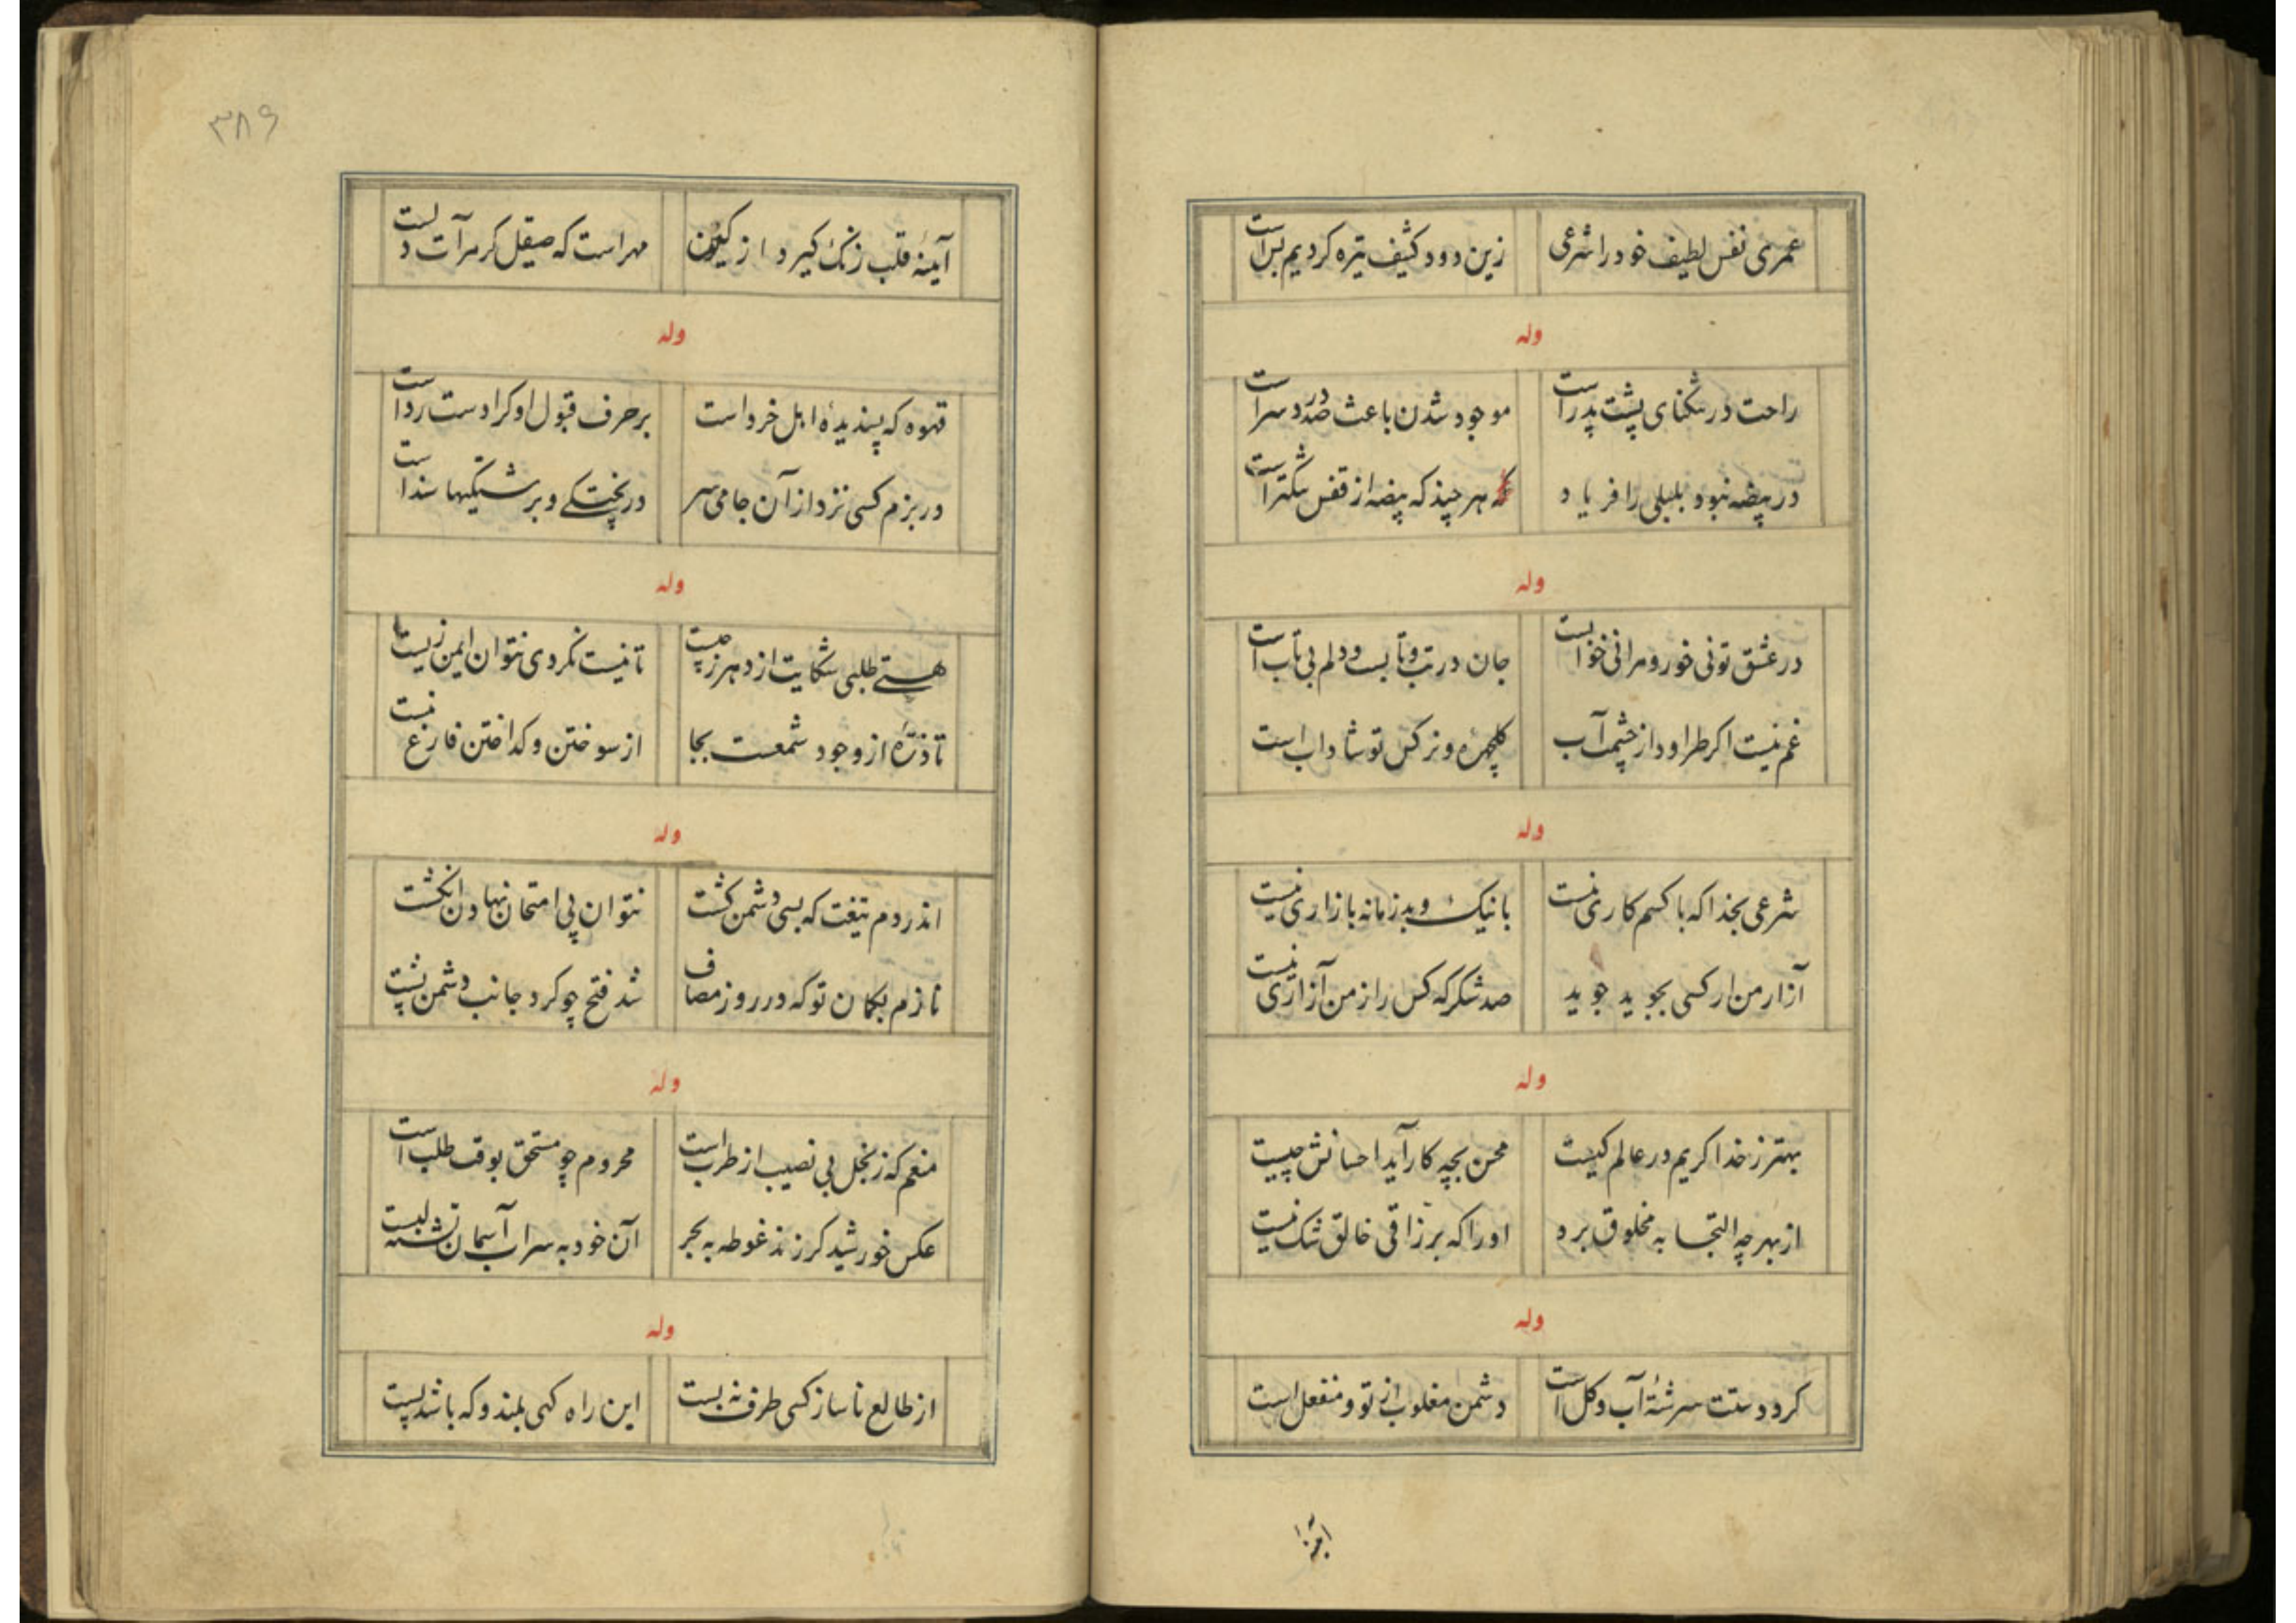 عمری نفس لطیف خود را شرعی زین دود کثیف تیره کردیم بس است
وله
راحت در تنکنای پشت پدر است موجود شدن باعث صد درد سر است
در بیضه نبود بلبلی را فریاد هر چند که بیضه از قفس تنکتر است
وله
در عشق تو نی خور و مرا نی خوابست جان در تب و تابست و دلم بی تاب است
غم نیست اکر طراود از چشمت آب کلچهره و نرکس تو شاداب است
وله
شرعی بخدا که با کسم کاری نیست با نیک و بد زمانه بازاری نیست
آزار من ار کسی بجوید جوید صد شکر که کس را ز من آزاری نیست
وله
بهتر ز خدا کریم در عالم کیست محسن بچه کار آید احسانش چیست
از بهر چه التجا به مخلوق برد اورا که برزاقی خالق شک نیست
وله
کر دوستت سرشتهٔ آب و کل است دشمن مغلوب از تو و منفعل است
آینهٔ
۳۸۶
آینهٔ قلب زنک کیرد از کین مهر است که صیقل کر مرآت دلست
وله
قهوه که پسندیدهٔ اهل خرد است بر حرف قبول او کرا دست رد است
در بزم کسی نزد از آن جامی سر در پختکی و برشتکیها سند است
وله
هستی طلبی شکایت از دهر ز چیست تا نیست نکردی نتوان ایمن زیست
تا ذرهٔ از وجود شمعست بجا از سوختن و کداختن فارغ نیست
وله
اندر دم تیغت که بسی دشمن کشت نتوان پی امتحان نهادن انکشت
نازم بکمان تو که در روز مصاف شد فتح چو کرد جانب دشمن پشت
وله
منعم که ز بخل بی نصیب از طرب است محروم چو مستحق بوقت طلب است
عکس خورشید کر زند غوطه به بحر آن خود به سراب آسمان تشنه لبست
وله
از طالع ناساز کسی طرف نه بست این راه کهی بلند و که باشد پست